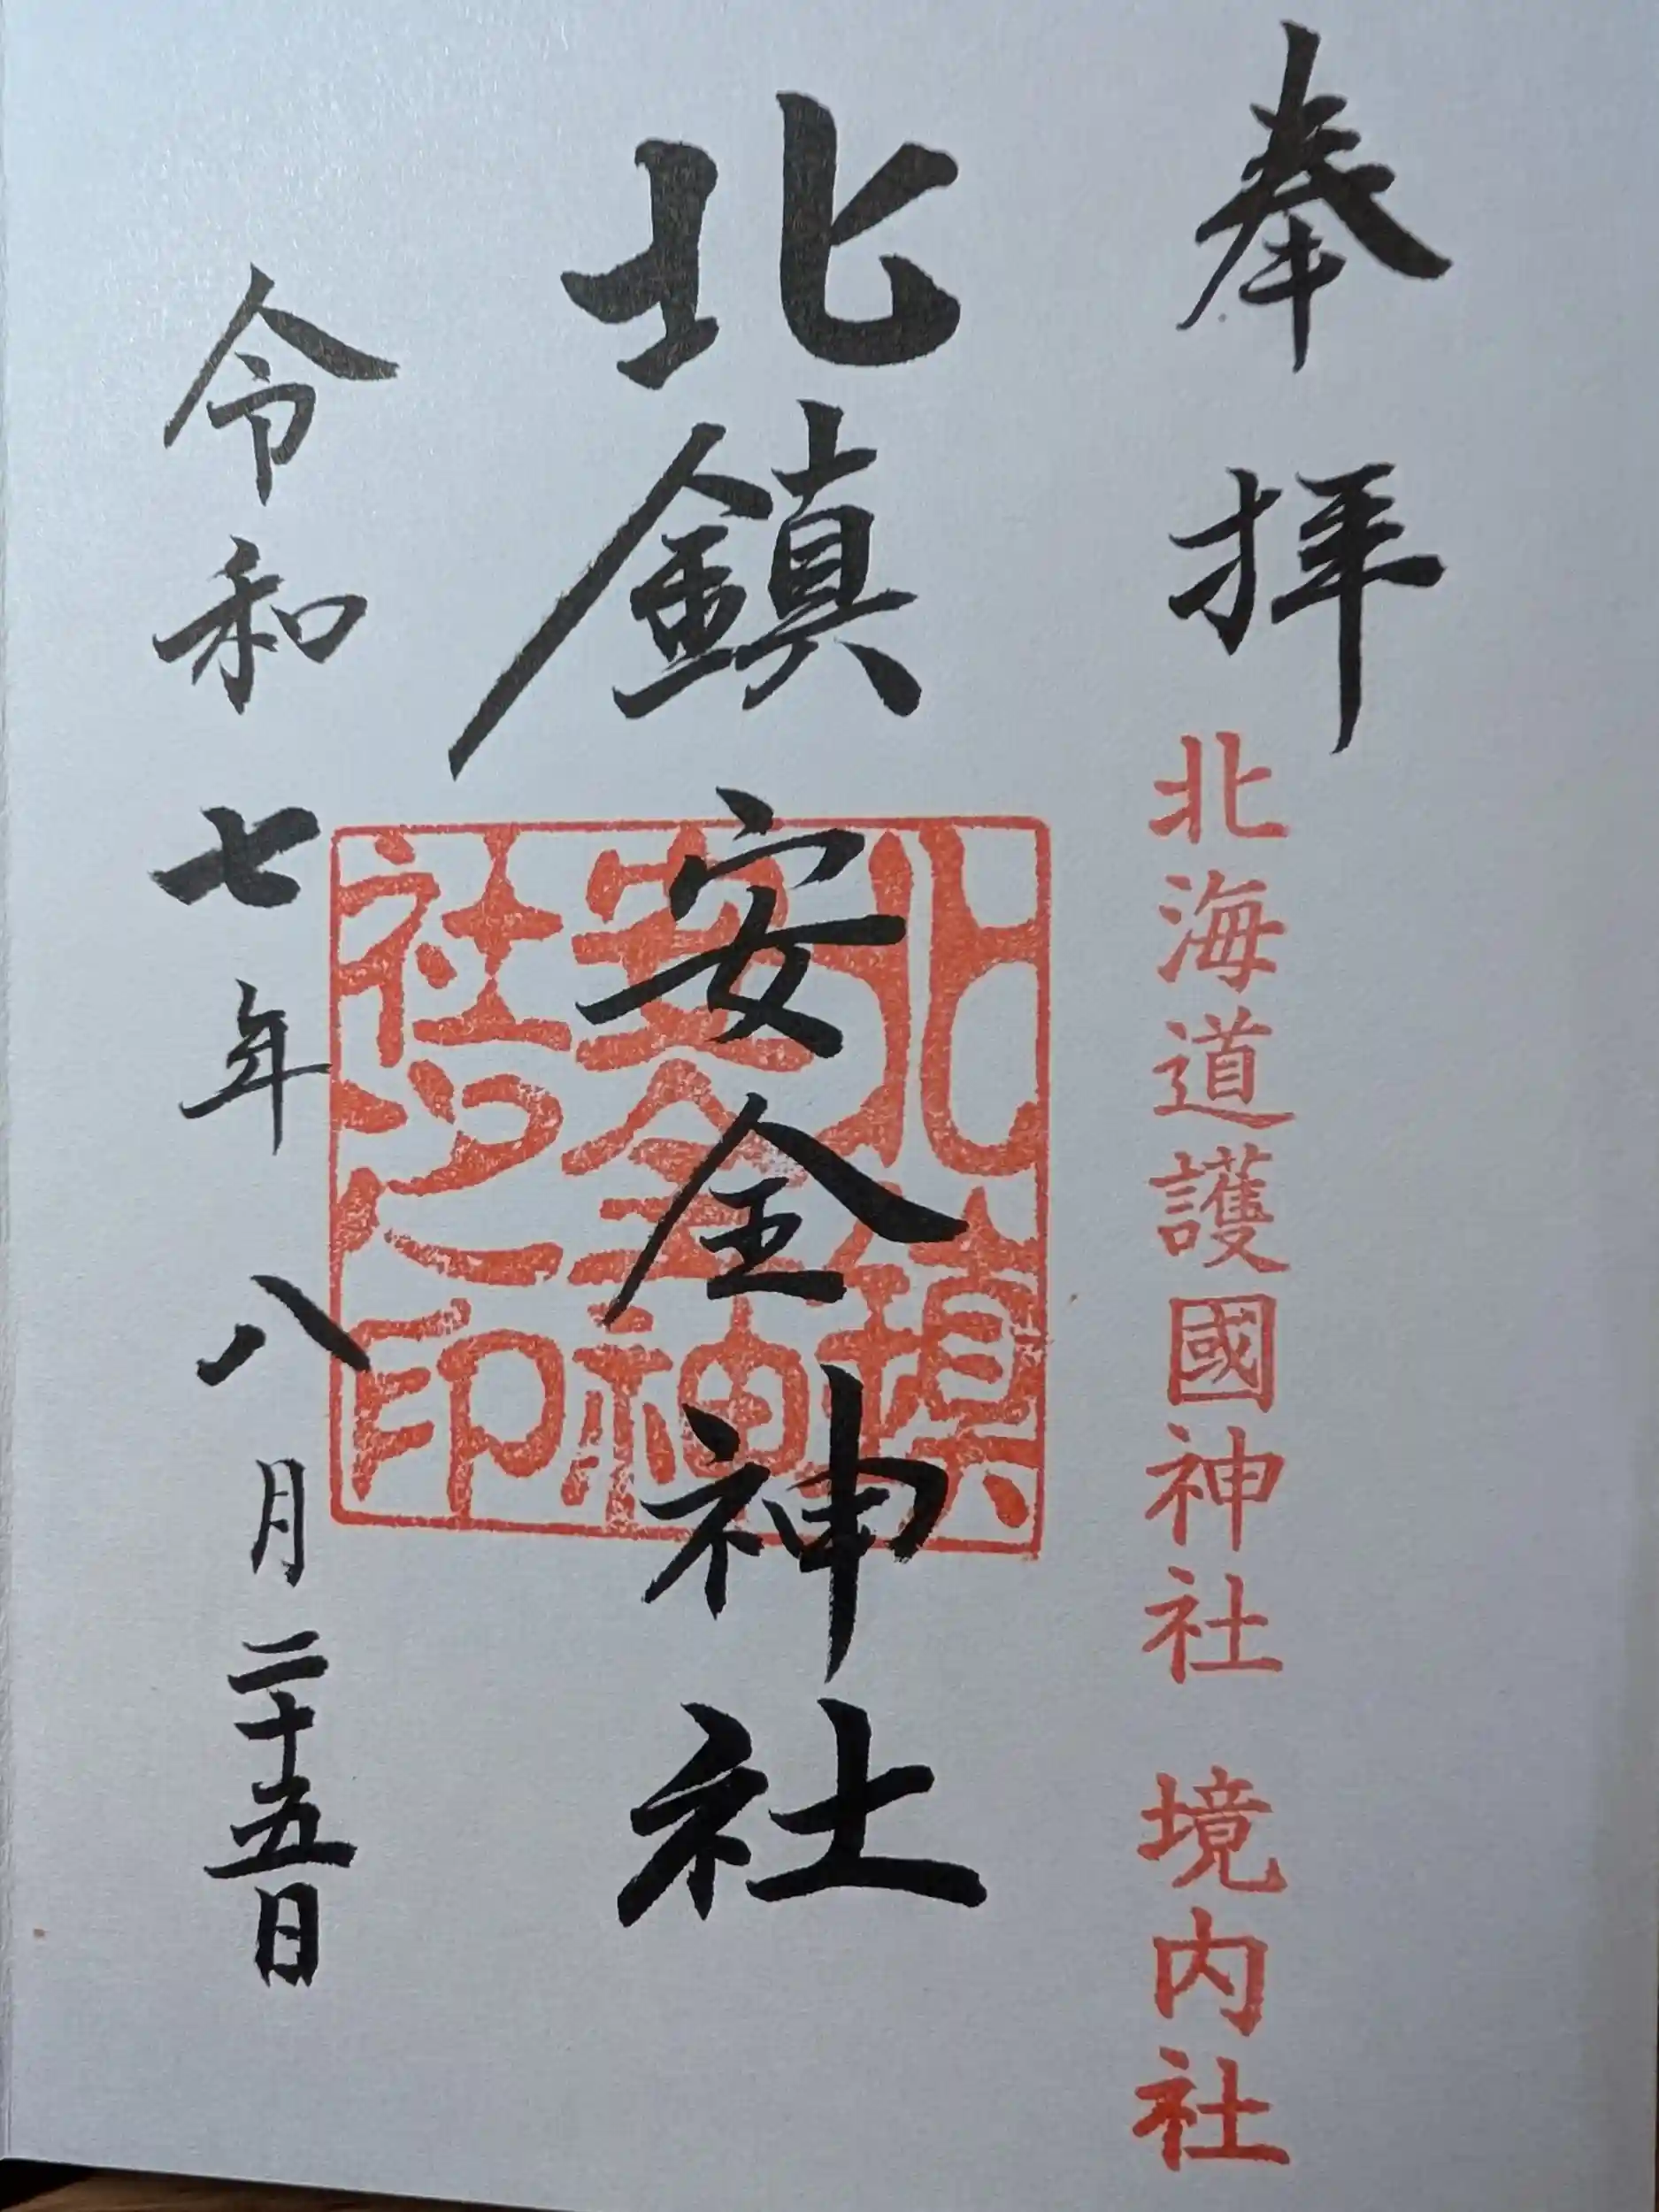 奉拝
北海道護國神社 境内社
北鎮安全神社
北鎮
安全神
社之印
令和七年八月二十五日